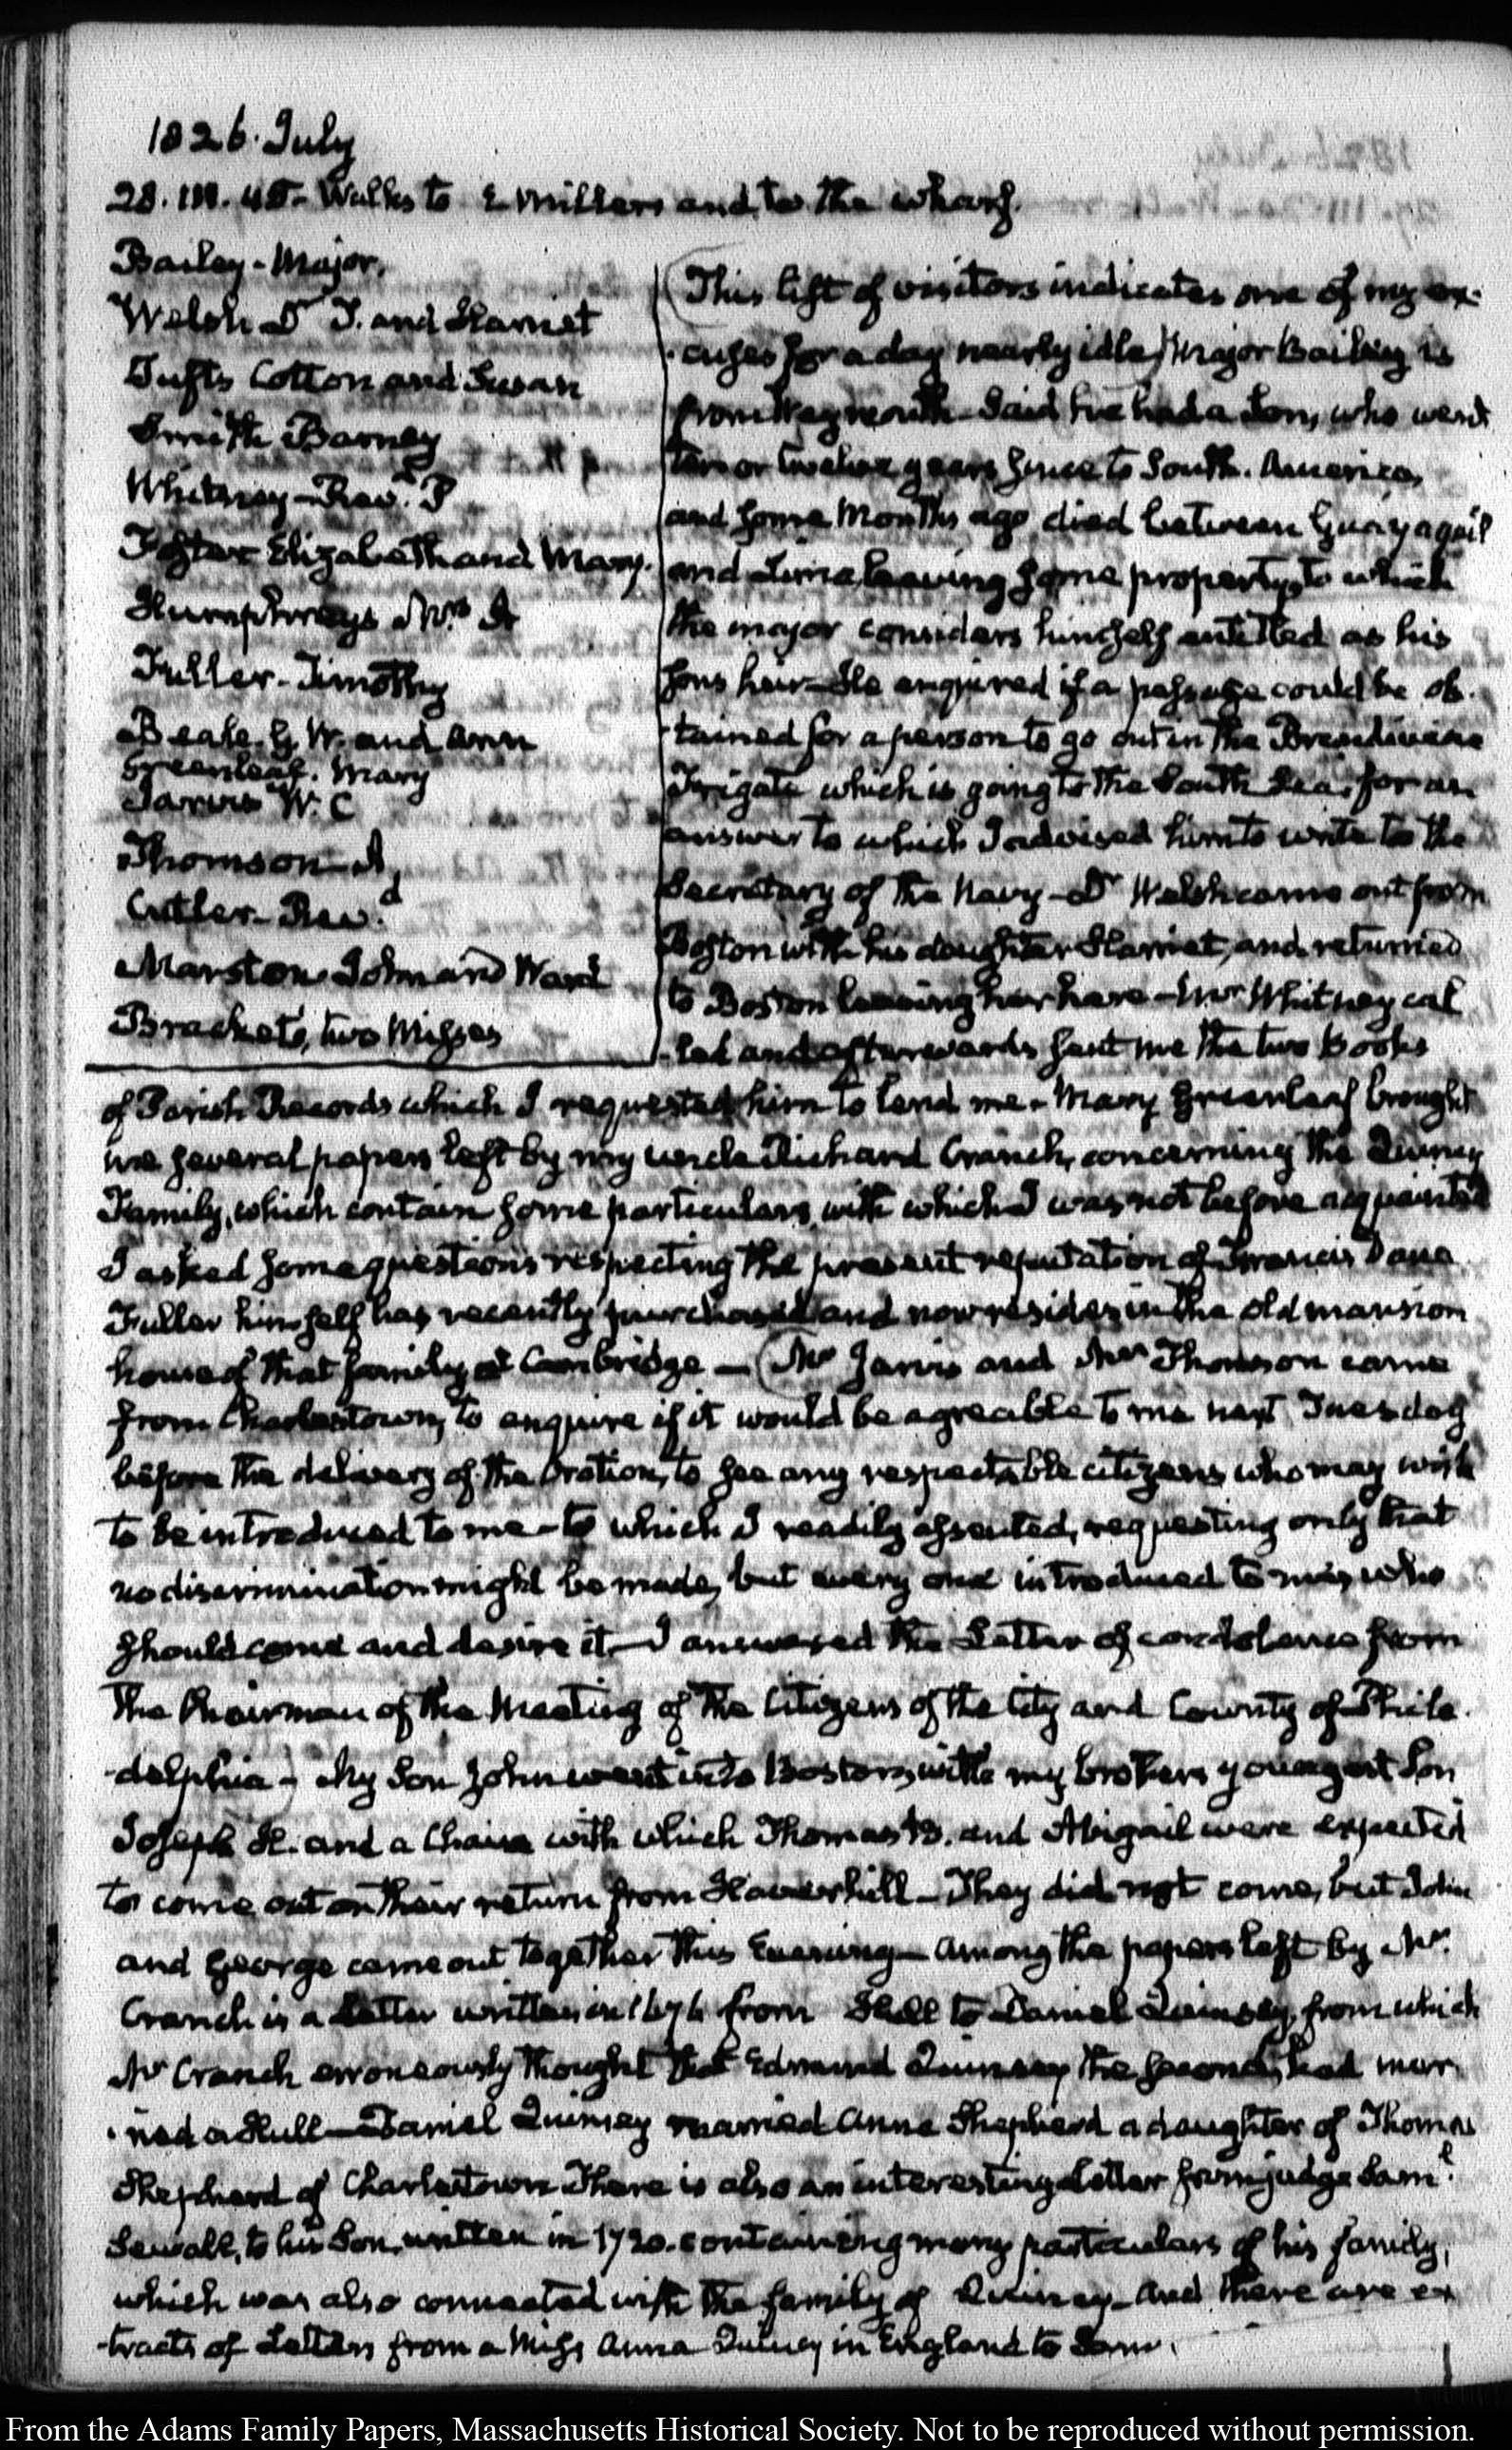 1826. July
28. III. 45. Walks to E Millers and to the wharf.
Bailey - Major.
Welsh Dr T. and Harriet
Tufts Cotton and Susan
Smith Barney
Whitney - Revd. P
Foster Elizabeth and Mary.
Humphreys Mrs
Fuller - Timothy
Beale. G. W. and Ann
Greenleaf. Mary
Jarvis W. C
Thomson - A
Cutler - Revd.
Marston John and Ward
Brackets, two Misses
(This list of visitors indicates one of my ex-
-cuses for a day nearly idle) Major Bailey is
from Weymouth - Said he had a Son, who went
ten or twelve years since to South. America,
and some Months ago died between Guayaquil
and Lima leaving some property, to which
the major considers himself entitled as his
Sons heir - He enquired if a passage could be ob-
-tained for a person to go out in the Brandiwine
Frigate which is going to the South Sea. for an
answer to which I advised him to write to the
Secretary of the Navy - Dr Welsh came out from
Boston with his daughter Harriet, and returned
to Boston leaving her here - Mr Whitney cal
-led and afterwards sent me the two Books
of Parish Records which I requested him to lend me. Mary Greenleaf brought
me several papers left by my uncle Richard Cranch, concerning the Quincy
Family, which contain some particulars, with which I was not before acquainted
I asked some questions respecting the present reputation of Francis Dana
Fuller himself has recently purchased and now resides in the old mansion
house of that family at Cambridge - (Mr Jarvis and Mr Thomson came
from Charlestown, to enquire if it would be agreable to me next Tuesday
before the delivery of the Oration, to see any respectable citizens who may wish
to be introduced to me - to which I readily assented, requesting only that
no discrimination might be made, but every one introduced to me, who
should come and desire it - I answered the Letter of condolence from
the Chairman of the Meeting of the Citizens of the City and County of Phila-
-delphia -) My Son John went into Boston, with my brothers youngest Son
Joseph H. and a Chaise with which Thomas B. and Abigail were expected
to come out on their return from Haverhill - They did not come, but John
and George came out together this Evening - Among the papers left by Mr.
Cranch is a Letter written in 1676 from Hull to Daniel Quinsey, from which
Mr Cranch erroneously thought that Edmund Quinsey the second, had mar
-ried a Hull - Daniel Quinsey married Anne Shepherd a daughter of Thomas
Shepherd of Charlestown There is also an interesting Letter from judge Saml.
Sewall, to his Son, written in 1720. containing many particulars of his family,
which was also connected with the family of Quincy - And there are ex
-tracts of Letters from a Miss Anna Quincy in England to
From the Adams Family Papers, Massachusetts Historical Society. Not to be reproduced without permission.